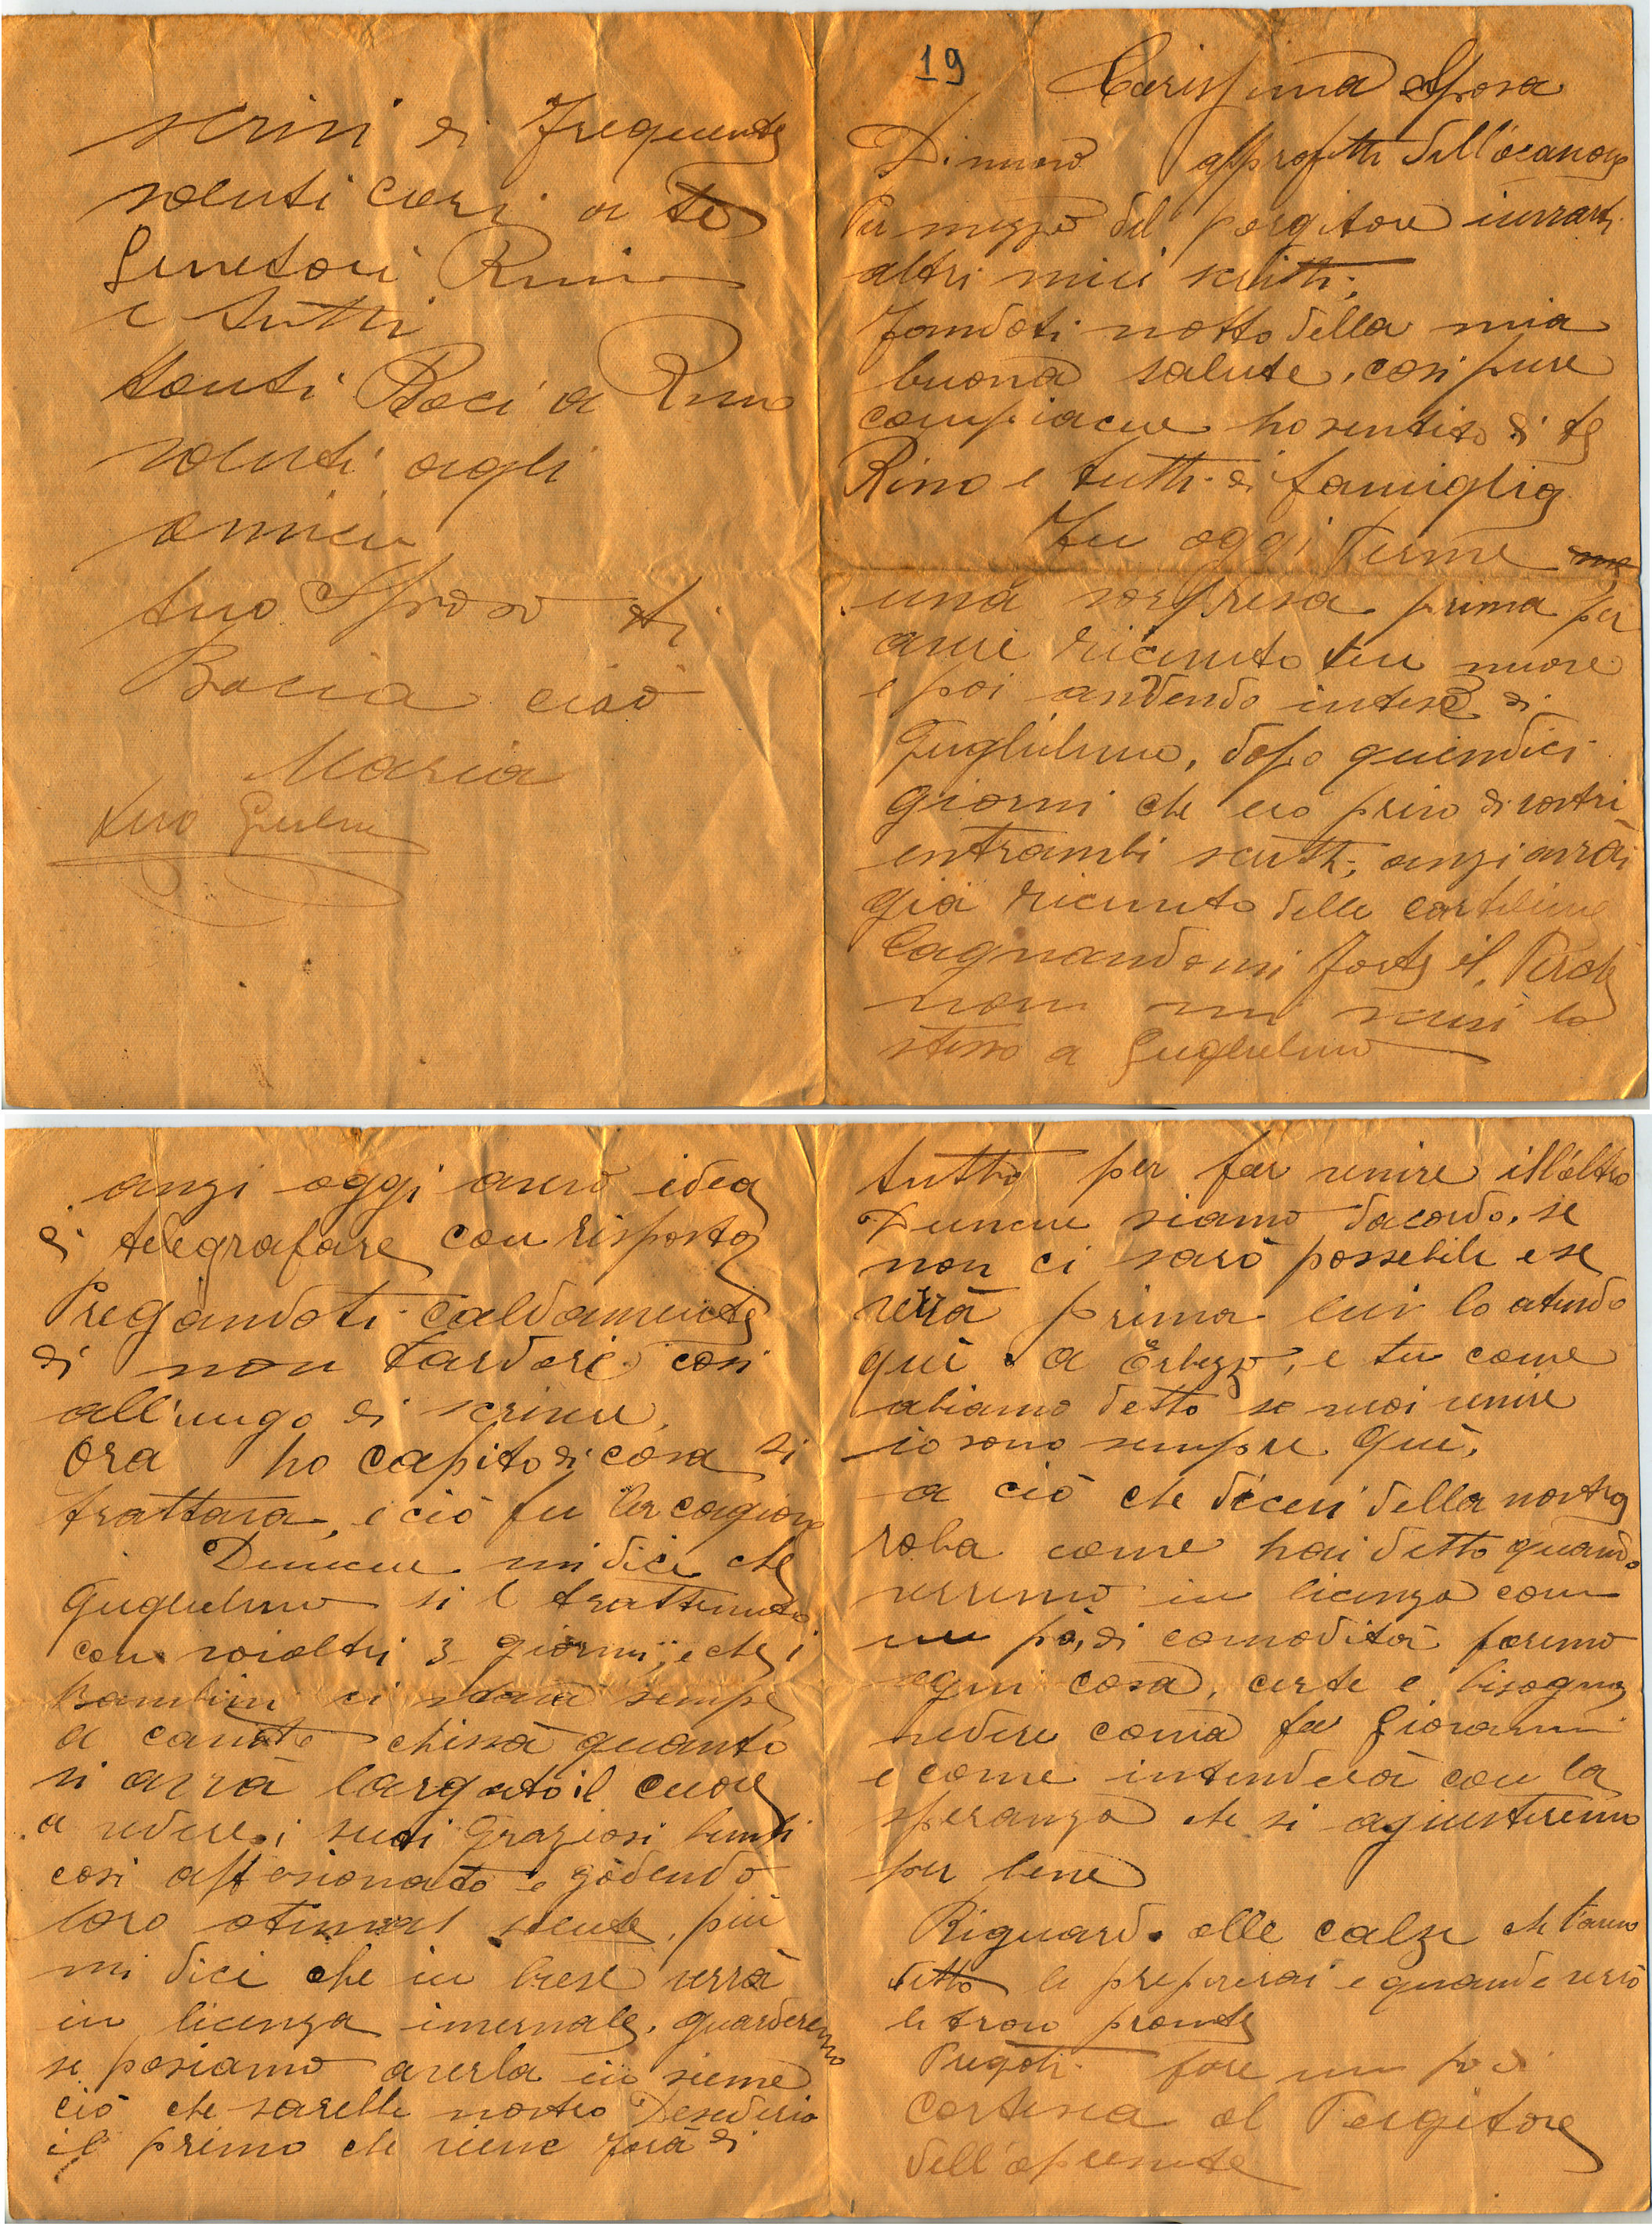 19
Carissima Sposa
Di nuovo approfitto dell'ocasione
Per mezzo del porgitore inviarti
altri miei scritti;
Fandoti notto della mia
buona salute, cosi pure
compiacere ho sentito di te
Rino e tutti di famiglia
Fu oggi Perme
una sorpresa prima per
avere ricevuto tue nuove
e poi andendo inteso di
Guglielmo, dopo quindici
giorni che ero privo di vostri
entrambi scritti; anzi avrai
già ricevuto delle cartoline
lagnandomi forte il Perche
non mi scrivi lo
stesso a Guglielmo
anzi oggi avevo idea
di telegrafare con risposta
Pregandoti caldamente
di non tardare cosi
all'ungo di scrivere,
Ora ho capito di cosa si
trattava, e ciò fu la cagione
Duncue mi dici che
Guglielmo si è trattenuto
con voialtri 3 giorni, e che i
Bambini ci stava sempre
a canto chissà quanto
si avrà largato il cuore
a vedere i suoi Graziosi bimbi
cosi affesionato e godendo
loro otima salute, più
mi dici che in brese verrà
in licenza invernale, guarderemo
se posiamo averla in sieme
ciò che sarebbe nostro Desederio
il primo che viene farà di
tutto per far venire ill'altro
Duncue siamo dacordo, se
non ci sarò possebile e se
verrà prima lui lo atendo
qui a Erbezzo, e tu come
abiamo detto se vuoi venire
io sono sempre Quì,
a ciò che dicevi della nostra
roba come hai detto quando
verremo in licenza con
un pò, di comodità faremo
ogni cosa, certe e bisogna
vedere coma fa Giovanni
e come intenderà con la
speranza che si agiusteremo
per bene
Riguardo alle calze che t'avevo
detto le preparerai e quando verrò
le trovo pronte
Pregoti fare un po di
Cortesia al Porgitore
dell'apresente
scrivi di frequente
saluti cari a te
Genetori Rino
e tutti
tanti Baci a Rino
saluti agli
amici
tuo Sposo che ti
Bacia ciao
Maria